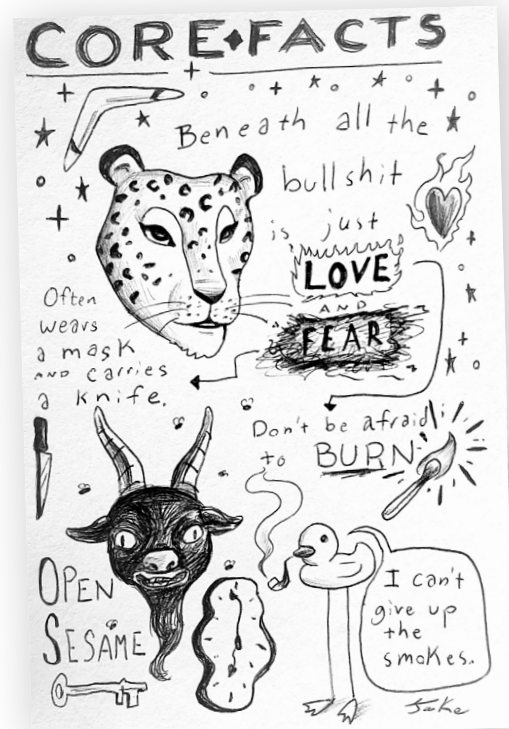 CORE FACTS
Beneath all the
bullshit
is just
LOVE
AND
FEAR
Often
wears
a mask
AND carries
a knife.
Don't be afraid
to BURN
OPEN
SESAME
I can't
give up
the
smokes.
Jake